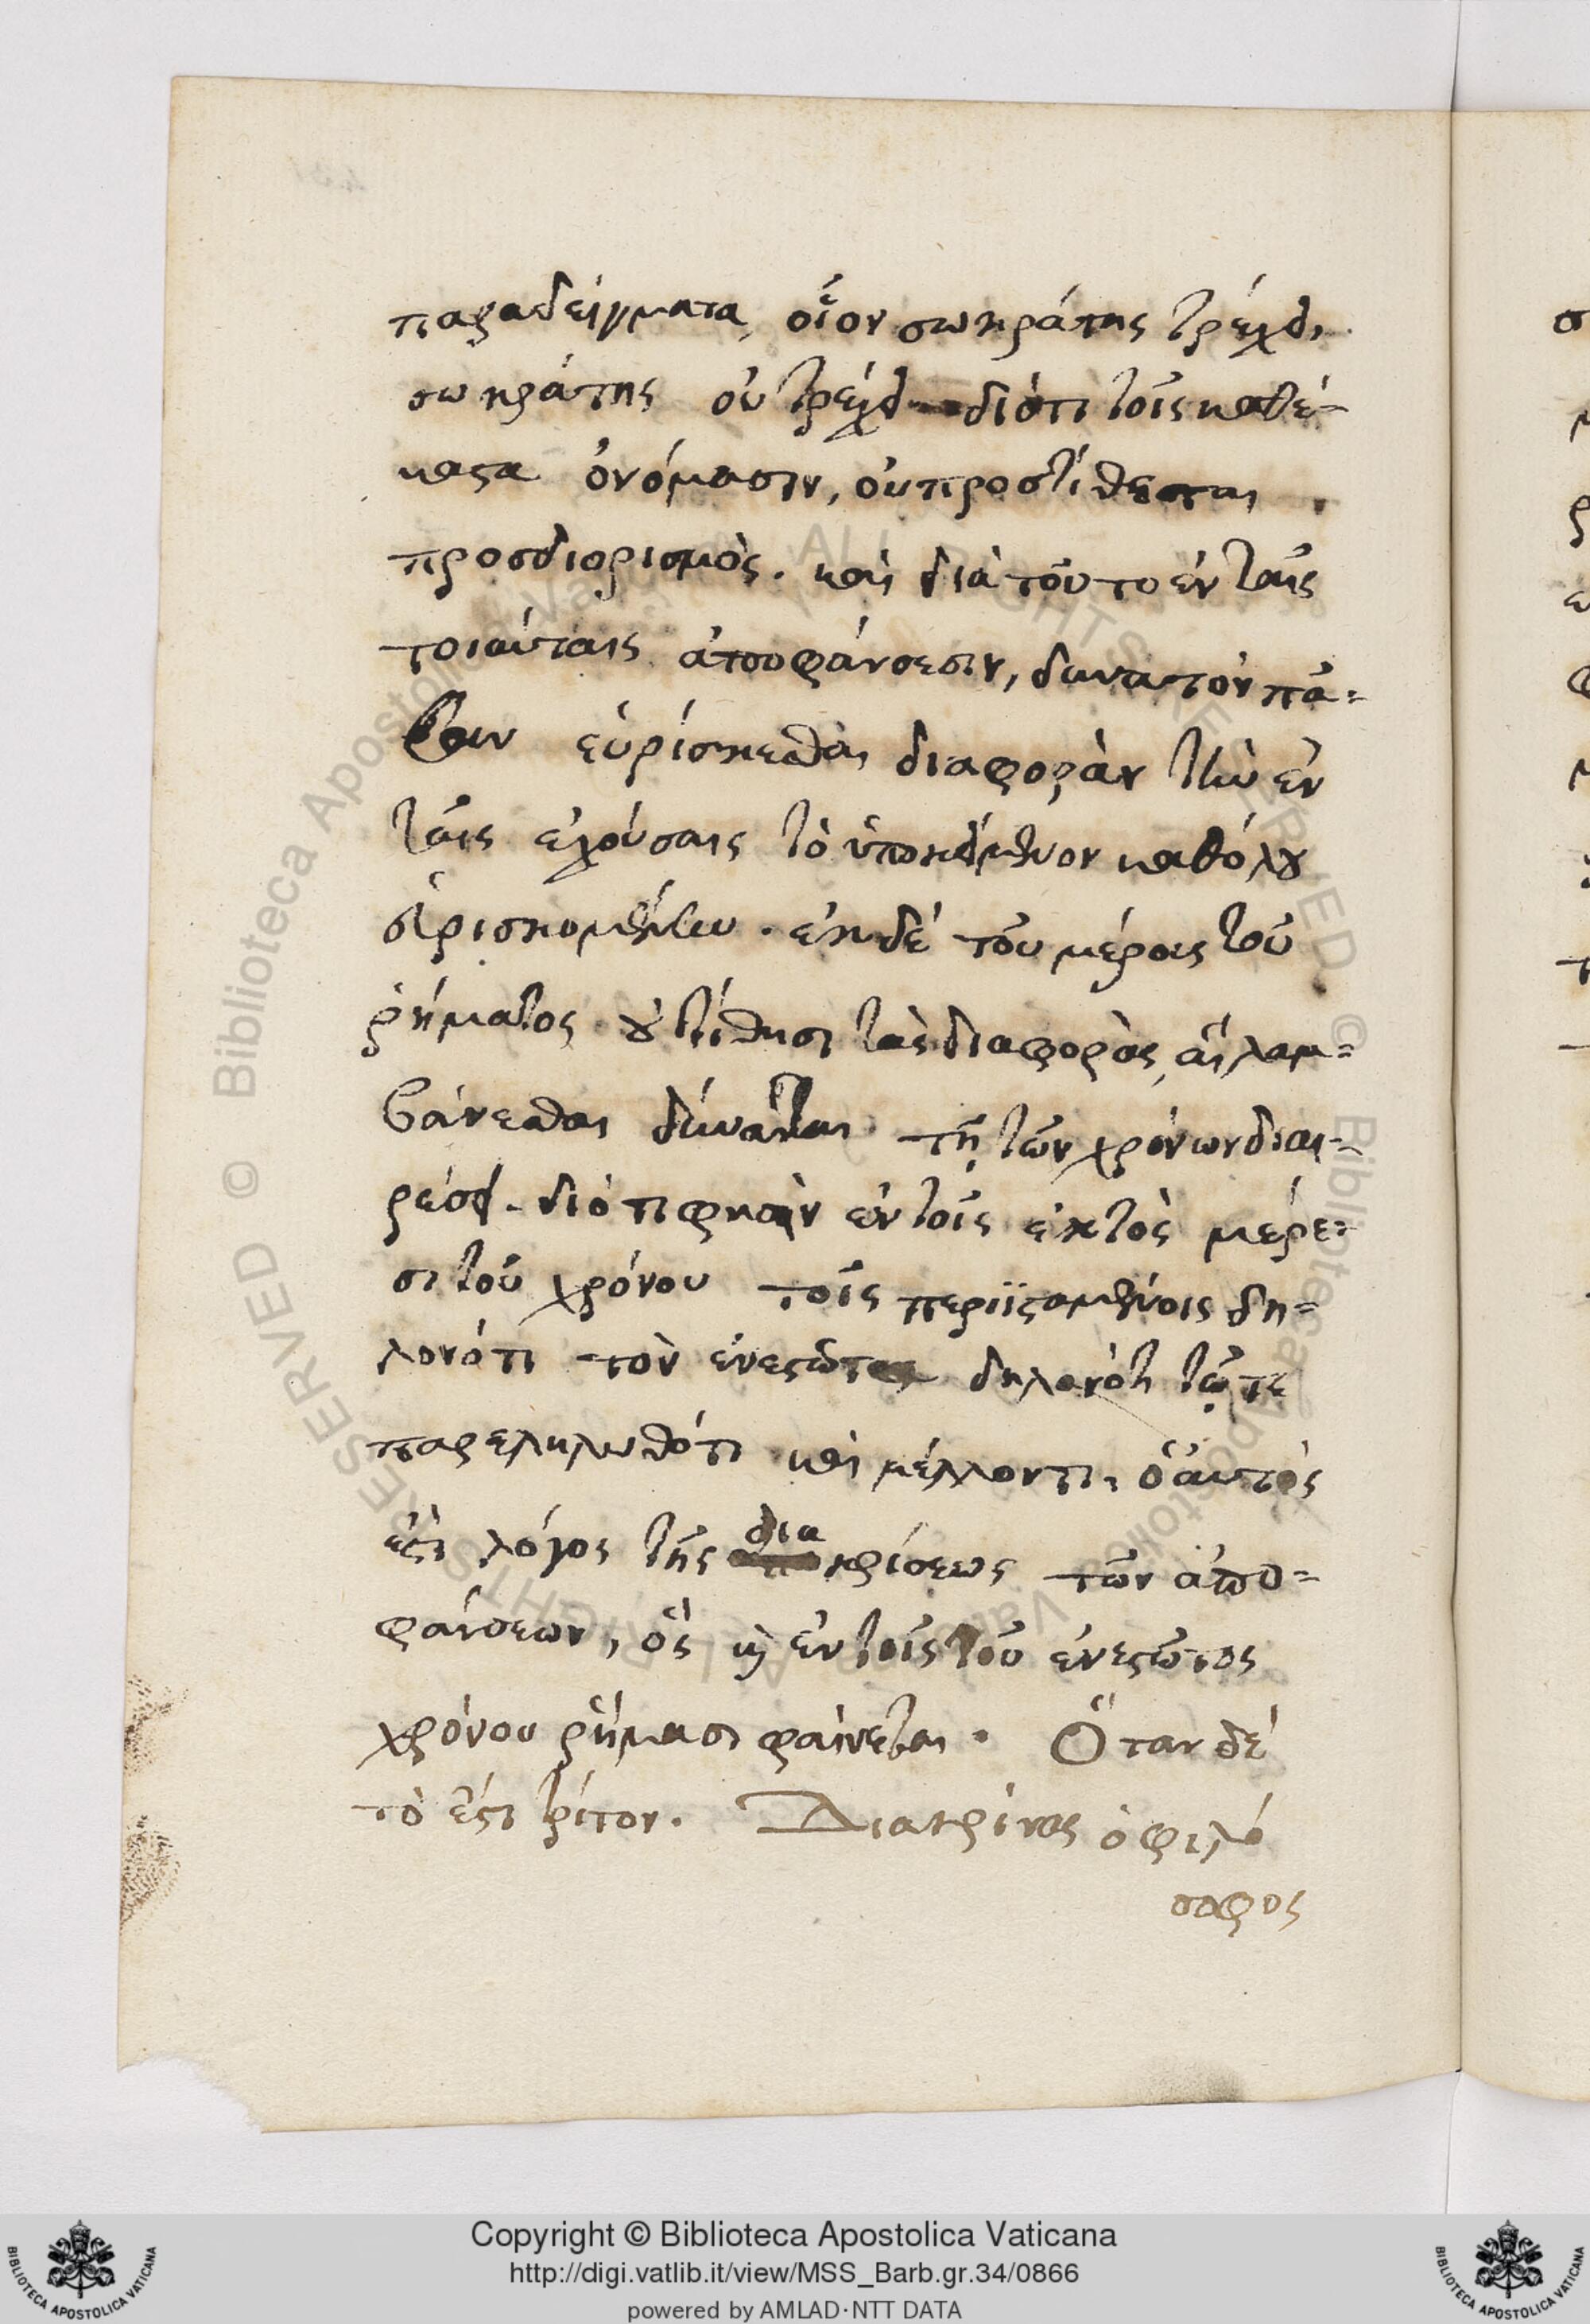 παραδείγματα, οἷον σωκράτης τρέχει
σωκράτης οὐ τρέχει διότι τοῖς καθέ-
καστα ὀνόμασιν, οὐ προστίθεται
προσδιορισμὸς. καὶ διὰ τοῦτο ἐν ταῖς
τοιαύταις ἀποφάνσεσιν, δυνατὸν πᾶ-
σαν εὑρίσκεσθαι διαφορὰν τὴν ἐν
ταῖς ἐχούσαις τὸ ὑποκείμενον καθόλου
εὑρισκομένην. ἐκ δὲ τοῦ μέρους τοῦ
ῥήματος οὐ τίθησι τὰς διαφορὰς, αἳ λαμ-
βάνεσθαι δύνανται τῇ τῶν χρόνων διαι-
ρέσει. διότι φησὶν ἐν τοῖς ἐκτὸς μέρε-
σι τοῦ χρόνου τοῖς περιϊσταμένοις δη-
λονότι τὸν ἐνεστῶτα δηλονότι τῷ τε
παρεληλυθότι καὶ μέλλοντι, ὁ αὐτὸς
ἐστι λόγος τῆς διακρίσεως τῶν ἀπο-
φάνσεων, ὃς καὶ ἐν τοῖς τοῦ ἐνεστῶτος
χρόνου ῥήμασι φαίνεται. Ὅταν δὲ
τὸ ἔστι τρίτον. Διακρίνας ὁ φιλό
σοφος
Copyright © Biblioteca Apostolica Vaticana
http://digi.vatlib.it/view/MSS_Barb.gr.34/0866
powered by AMLAD·NTT DATA